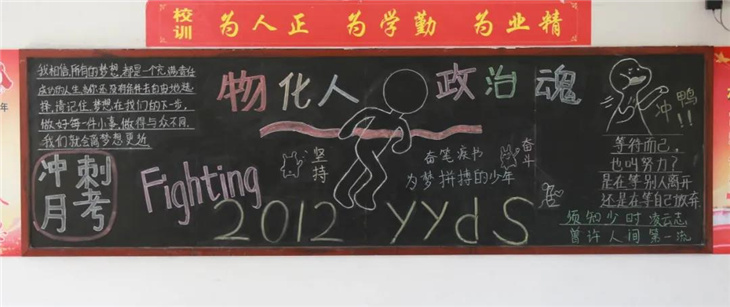 校训
为人正 为学勤 为业精
年
我相信,所有的梦想,都是一个充满责任
成的人生,
择,请记住,梦想在我们的下一步,
做好每一件小事,做得与众不同,
我们就会离梦想更近
冲刺
月考
Fighting
物化人 政治魂
坚持
奋笔疾书
为梦拼搏的少年
奋斗
2012 yyds
冲鸭!!
等待而已,
也叫努力?
是在等别人离开
还是在等自己放弃
须知少时凌云志
曾许人间第一流